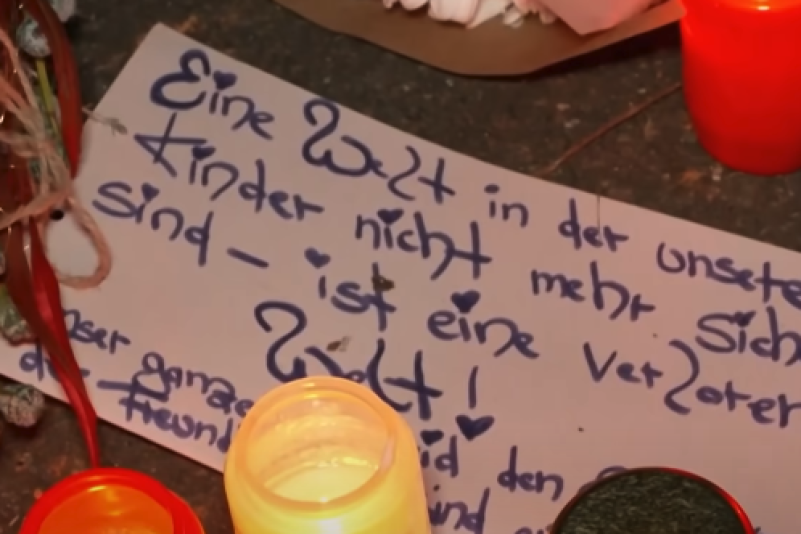 Eine Welt in der unsere
Kinder nicht mehr sich
sind - ist eine verloren
Welt!
nser ganze id den
der Freund ind